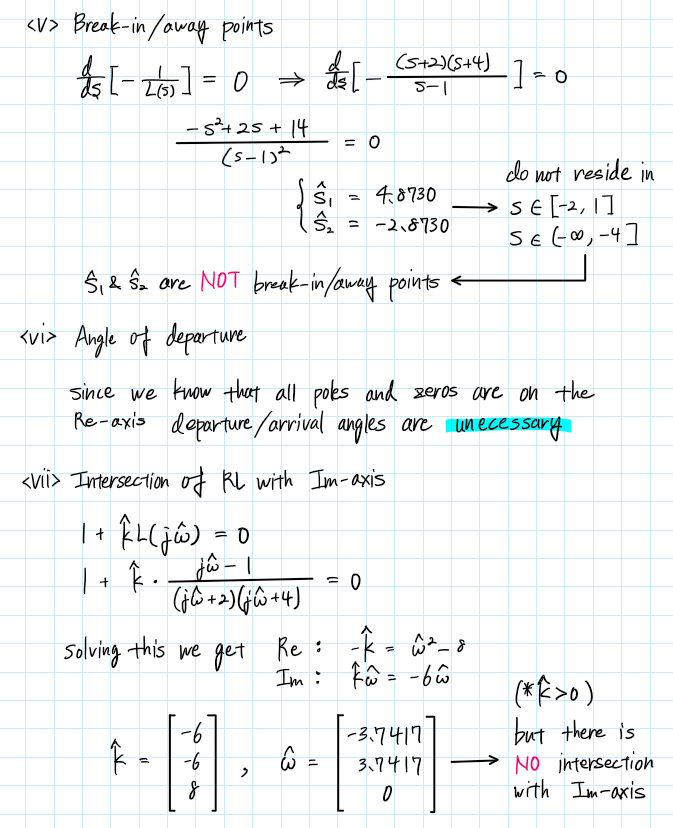 <v> Break-in/away points
d/ds[-1/L(s)] = 0 ⇒ d/ds[-(s+2)(s+4)/s-1] = 0
-s²+2s+14/(s-1)² = 0
{ ŝ₁ = 4.8730
ŝ₂ = -2.8730 → do not reside in
s ∈ [-2, 1]
s ∈ (-∞, -4]
ŝ₁ & ŝ₂ are NOT break-in/away points ←
<vi> Angle of departure
since we know that all poles and zeros are on the
Re-axis departure/arrival angles are unecessary
<vii> Intersection of RL with Im-axis
1 + k̂L(jω̂) = 0
1 + k̂ · jω̂-1/(jω̂+2)(jω̂+4) = 0
solving this we get Re : -k̂ = ω̂²-8
Im : k̂ω̂ = -6ω̂
k̂ = [-6 -6 8] , ω̂ = [-3.7417 3.7417 0] →
(*k̂>0)
but there is
NO intersection
with Im-axis